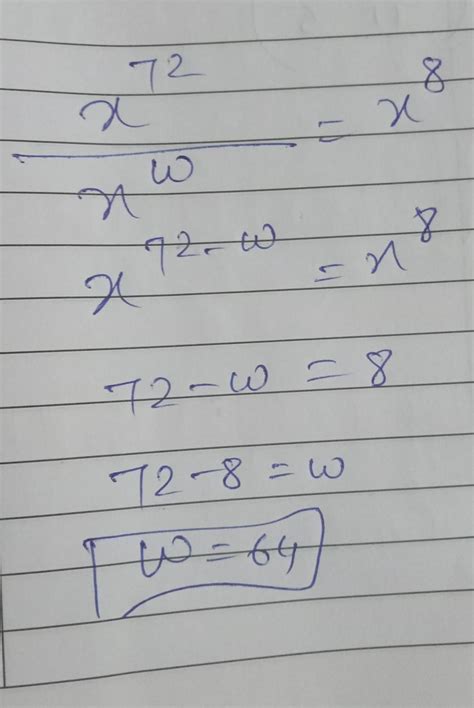 x^72 / x^w = x^8
x^72-w = x^8
72-w = 8
72-8 = w
w = 64